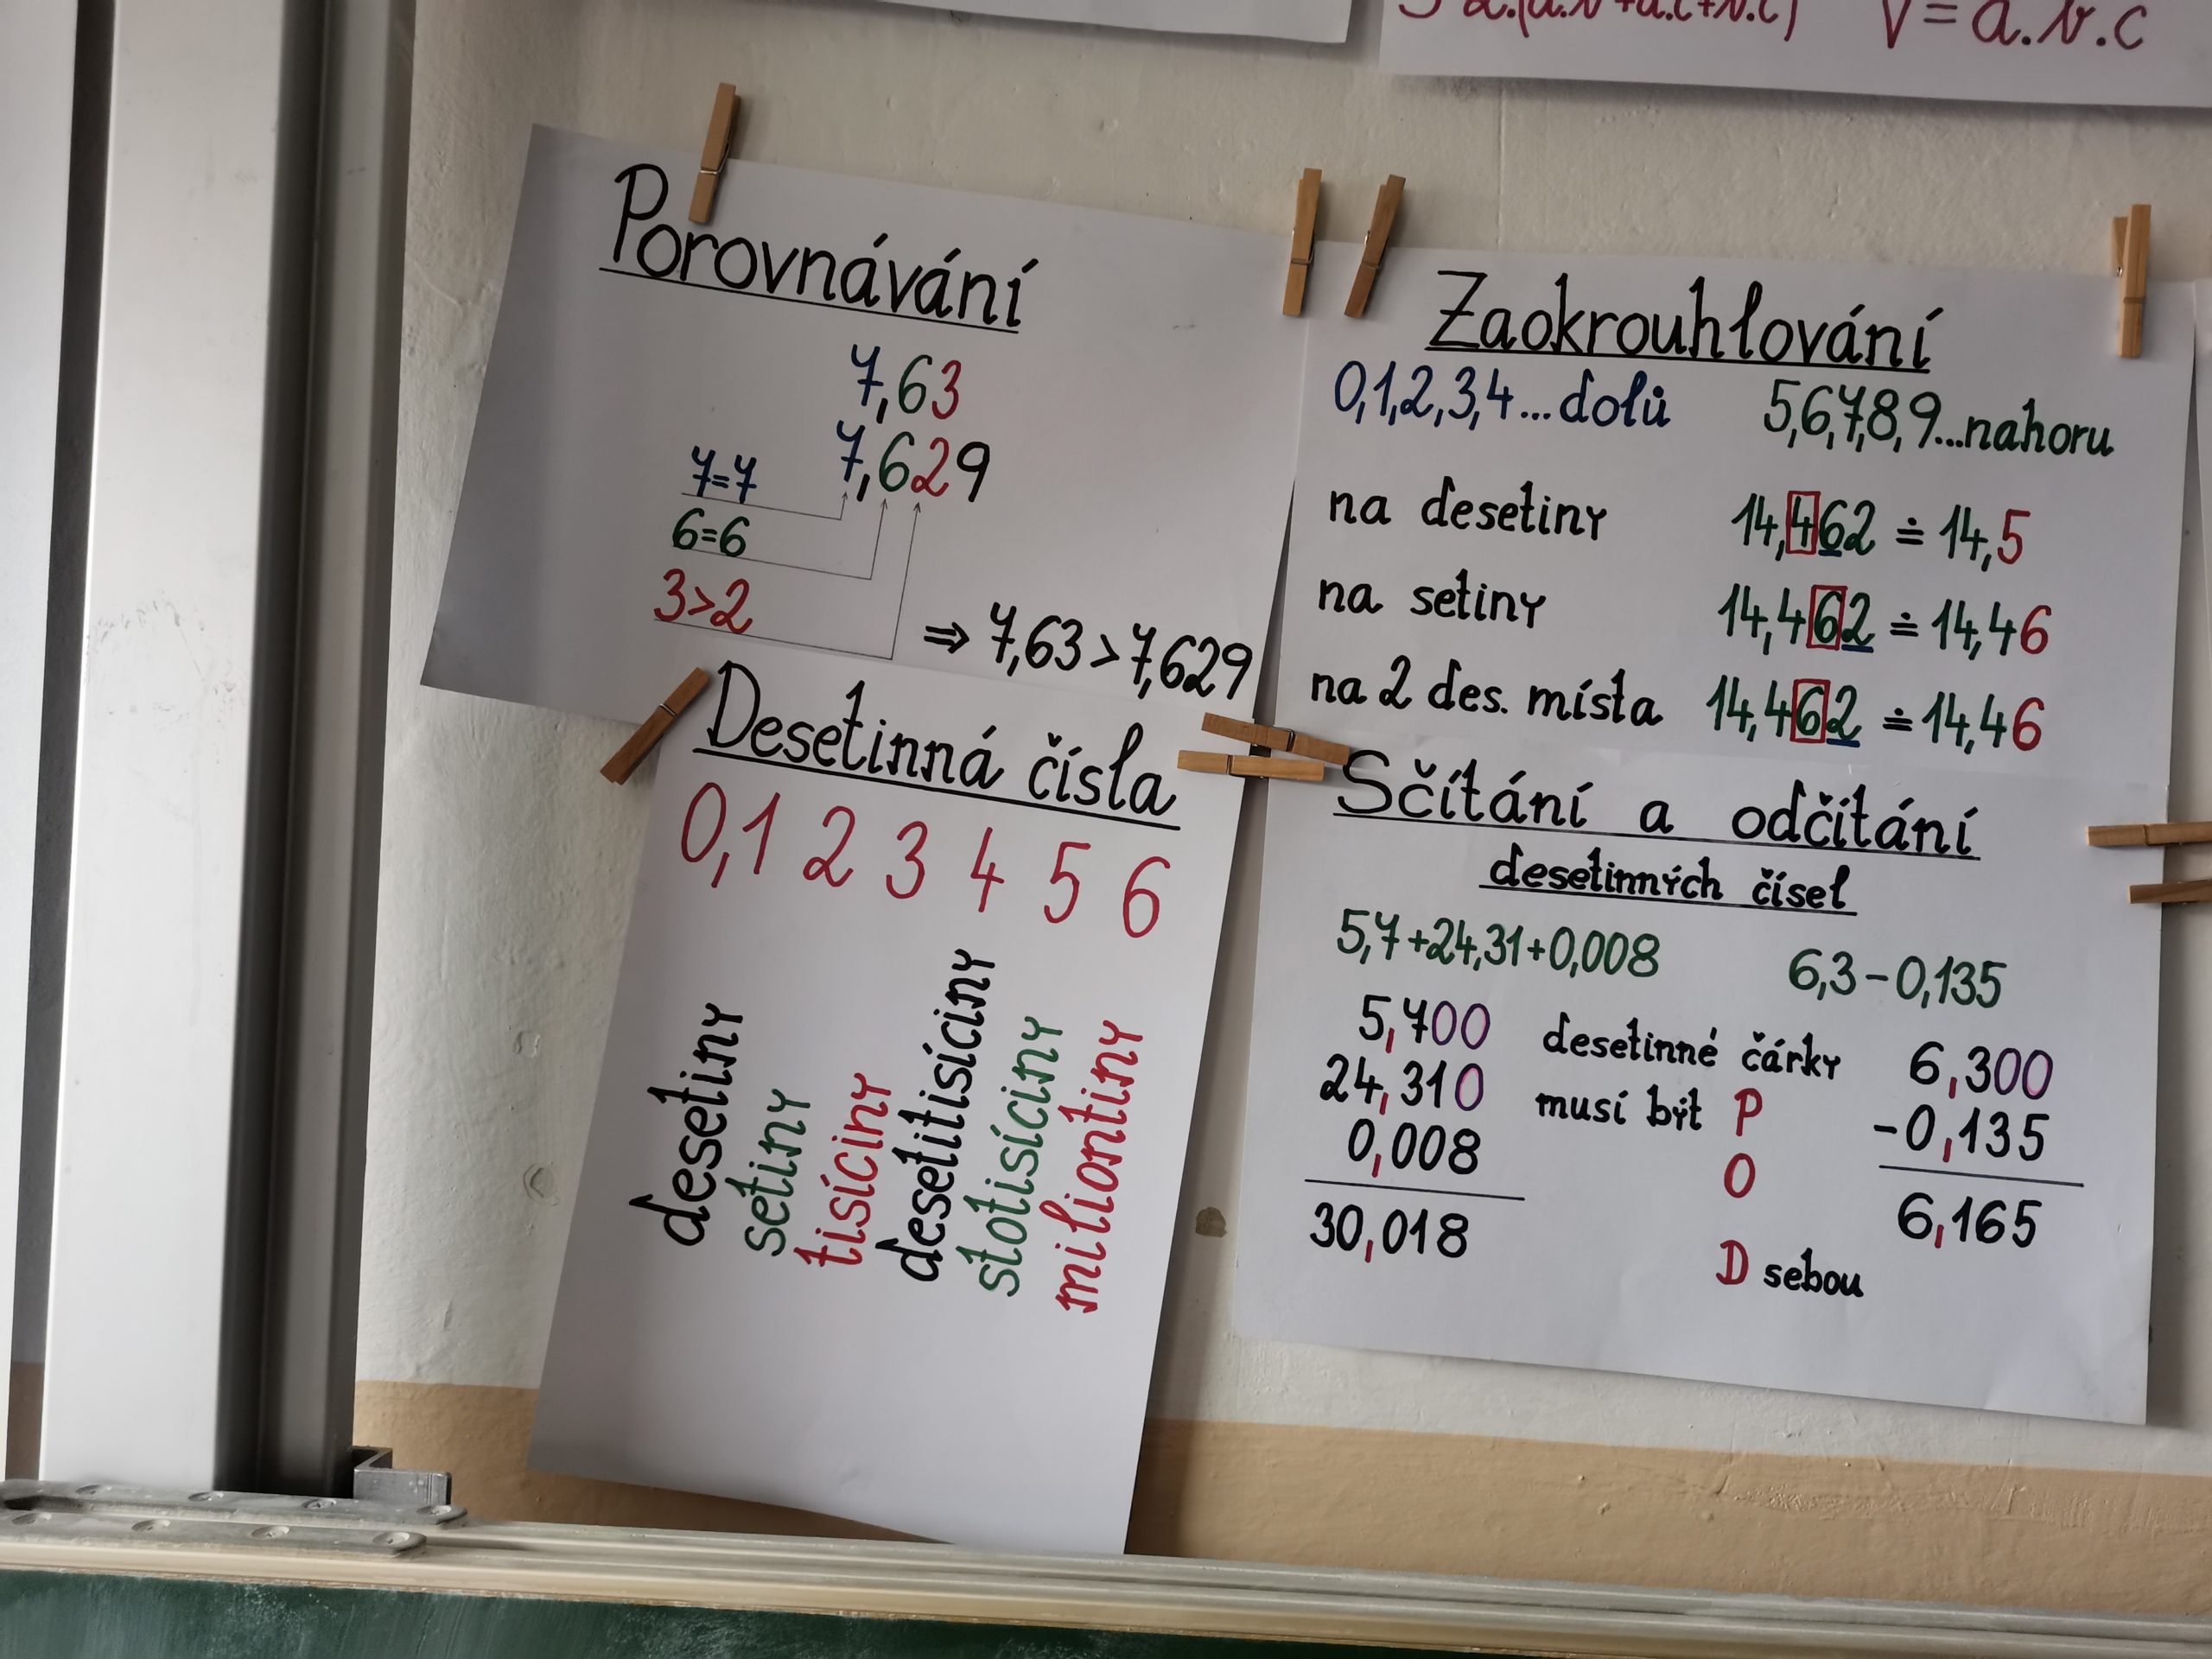 V=a.b.c
Porovnávání
7,63
7,629
7=7
6=6
3>2
⇒ 7,63>7,629
Zaokrouhlování
0,1,2,3,4...dolů 5,6,7,8,9...nahoru
na desetiny 14,462 ≐ 14,5
na setiny 14,462 ≐ 14,46
na 2 des. místa 14,462 ≐ 14,46
Desetinná čísla
0,1 2 3 4 5 6
desetiny
setiny
tisíciny
desetitisíciny
stotisíciny
miliontiny
Sčítání a odčítání
desetinných čísel
5,7+24,31+0,008 6,3-0,135
5,700
24,310
0,008
30,018
desetinné čárky
musí být P
O
D sebou
6,300
-0,135
6,165